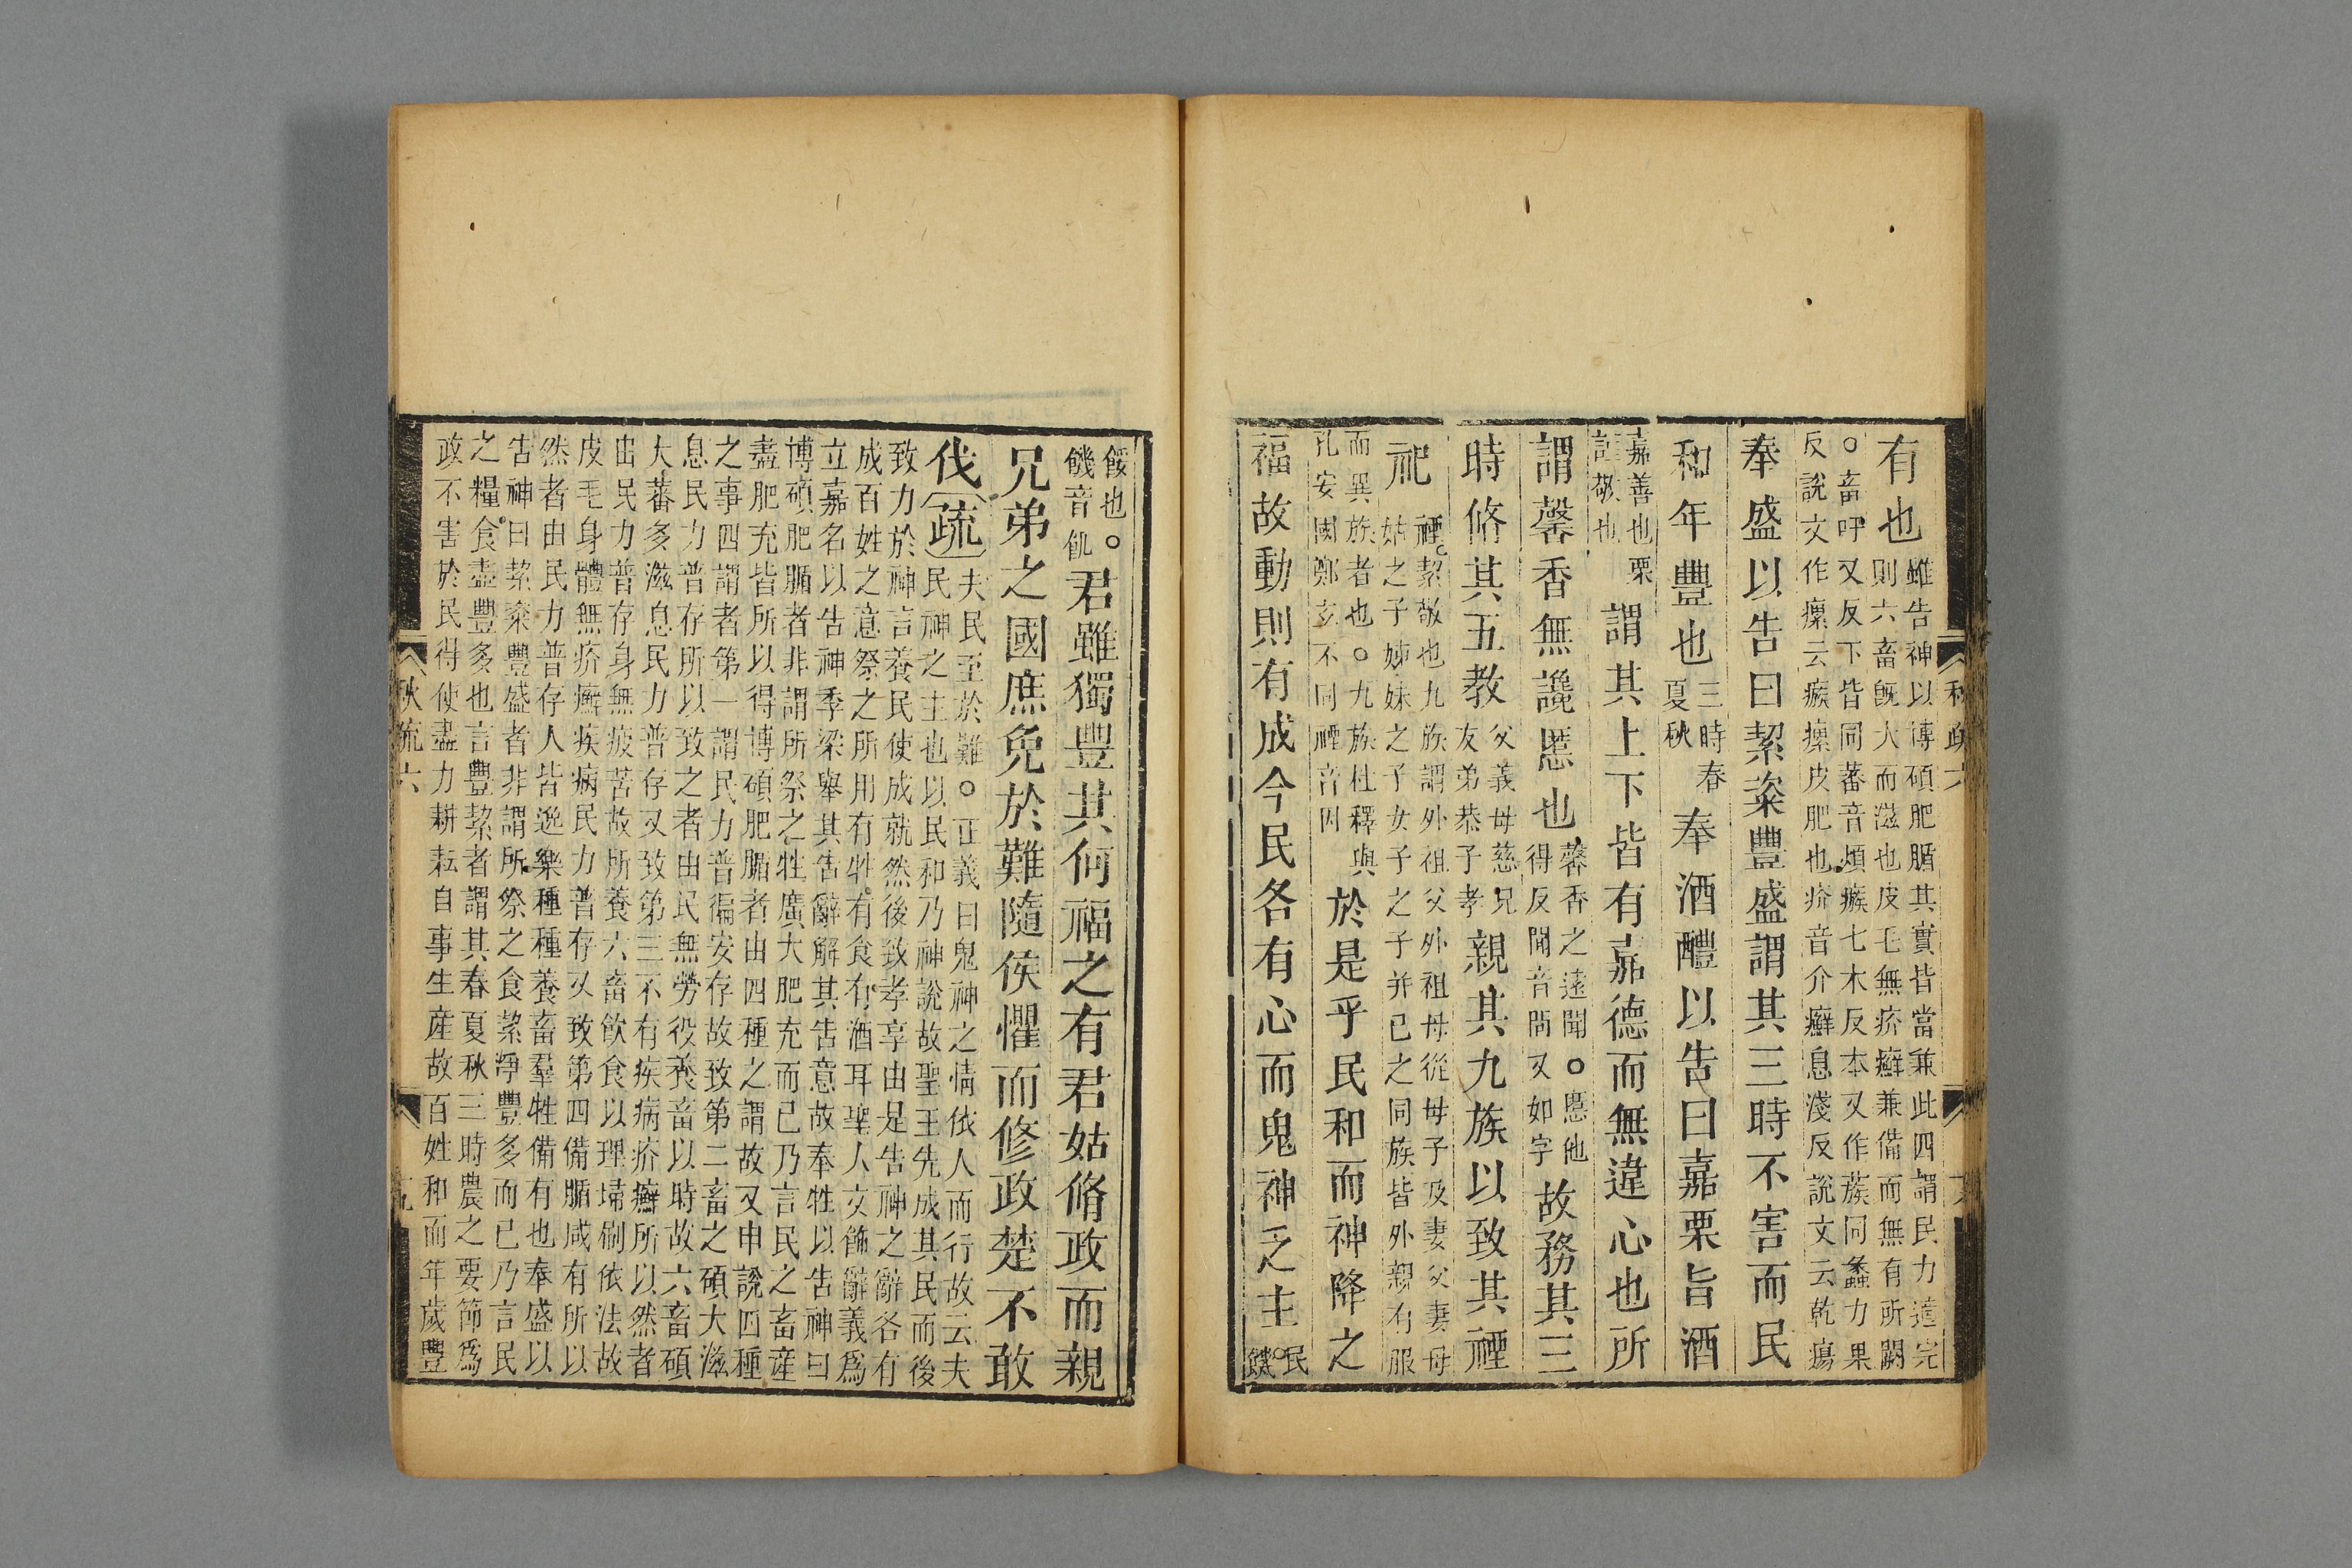 有也雖告神以博碩肥腯其實皆當兼此四謂民力適完
則六畜旣大而滋也皮毛無疥癬兼備而無有所闕
○畜吁又反下皆同蕃音煩瘯七木反本又作蔟同蠡力果
反說文作瘰云瘯瘰皮肥也疥音介癬息淺反說文云乾瘍
奉盛以告曰絜粢豐盛謂其三時不害而民
和年豐也三時春
夏秋
奉酒醴以告曰嘉栗旨酒
嘉善也栗
謹敬也
謂其上下皆有嘉德而無違心也所
謂馨香無讒慝也馨香之遠聞○慝他
得反聞音問又如字
故務其三
時脩其五教父義母慈兄
友弟恭子孝
親其九族以致其禋
祀禋絜敬也九族謂外祖父外祖母從母子及妻父妻母
姑之子姊妹之子女子之子并已之同族皆外親有服
而異族者也○九族杜釋與
孔安國鄭玄不同禋音因
於是乎民和而神降之
福故動則有成今民各有心而鬼神乏主民
饑
餒也○
饑音飢
君雖獨豐其何福之有君姑脩政而親
兄弟之國庶免於難隨侯懼而修政楚不敢
伐疏夫民至於難○正義曰鬼神之情依人而行故云夫
民神之主也以民和乃神說故聖王先成其民而後
致力於神言養民使成就然後致孝享由是告神之辭各有
成百姓之意祭之所用有牲有食有酒耳聖人文飾辭義爲
立嘉名以告神季梁舉其告辭解其告意故奉牲以告神曰
博碩肥腯者非謂所祭之牲廣大肥充而已乃言民之畜產
盡肥充皆所以得博碩肥腯者由四種之謂故又申說四種
之事四謂者第一謂民力普徧安存故致第二畜之碩大滋
息民力普存所以致之者由民無勞役養畜以時故六畜碩
大蕃多滋息民力普存又致第三不有疾病疥癬所以然者
由民力普存身無疲苦故所養六畜飲食以理埽刷依法故
皮毛身體無疥癬疾病民力普存又致第四備腯咸有所以
然者由民力普存人皆逸樂種種養畜羣牲備有也奉盛以
告神曰絜粢豐盛者非謂所祭之食絜淨豐多而已乃言民
之糧食盡豐多也言豐絜者謂其春夏秋三時農之要節爲
政不害於民得使盡力耕耘自事生産故百姓和而年歲豐
秋疏六